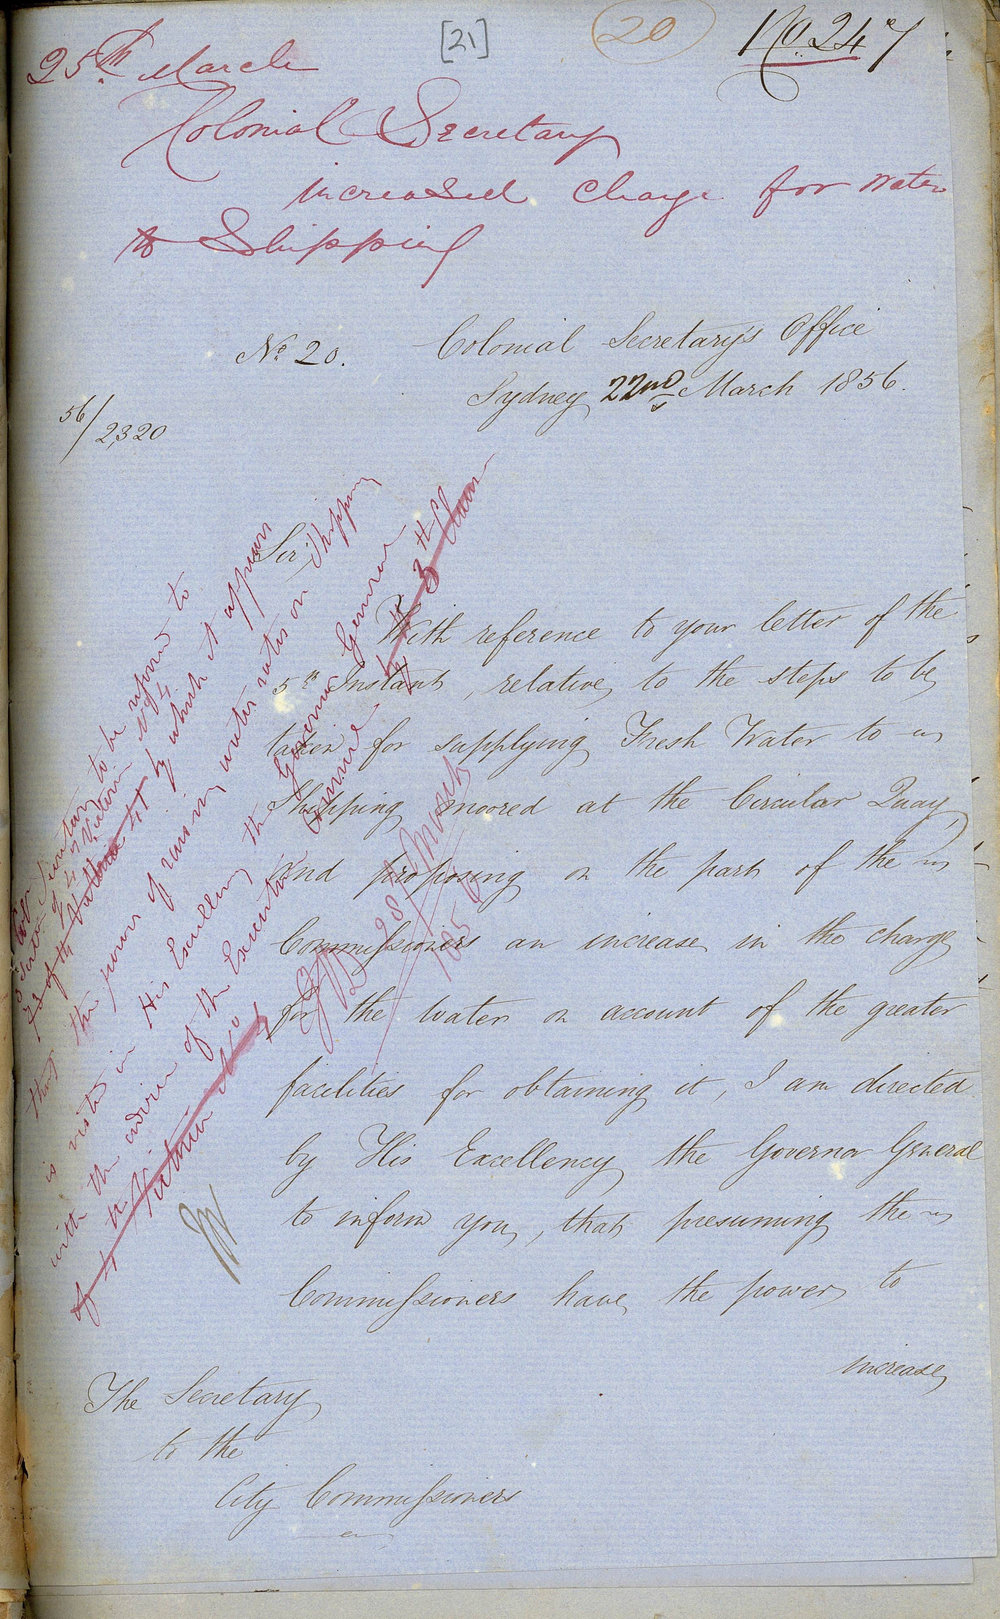 [21]
20
No. 247
25th March
Colonial Secretary
increased charge for water
to Shipping
No. 20.
Colonial Secretary's Office
Sydney 22nd March 1856.
56/2320
Sir,
With reference to your letter of the
5th Instant, relative to the steps to be
taken for supplying Fresh Water to
Shipping moored at the Circular Quay,
and proposing on the part of the
Commissioners an increase in the charge
for the water on account of the greater
facilities for obtaining it, I am directed
by His Excellency the Governor General
to inform you, that presuming the
Commissioners have the power to
increase
The Secretary
to the
City Commissioners
Col Secretary to be referred to
3 Section of Victoria No 4
73 of the by which it appears
that the power of raising water rates on Shipping
is vested in His Excellency the Governor General
with the advice of the Executive Council
of the
Victoria No
28 March
1856